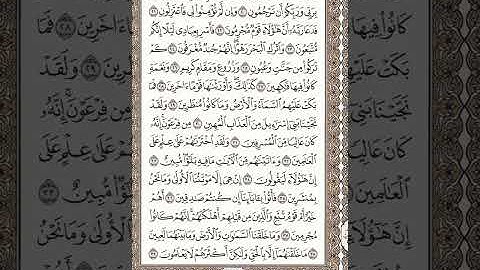 بِرَبِّي وَرَبِّكُمْ أَن تَرْجُمُونِ ٢٠ وَإِن لَّمْ تُؤْمِنُوا۟ لِي فَٱعْتَزِلُونِ ٢١
فَدَعَا رَبَّهُۥٓ أَنَّ هَٰٓؤُلَآءِ قَوْمٌ مُّجْرِمُونَ ٢٢ فَأَسْرِ بِعِبَادِي لَيْلًا إِنَّكُم
مُّتَّبَعُونَ ٢٣ وَٱتْرُكِ ٱلْبَحْرَ رَهْوًا إِنَّهُمْ جُندٌ مُّغْرَقُونَ ٢٤ كَمْ
تَرَكُوا۟ مِن جَنَّٰتٍ وَعُيُونٍ ٢٥ وَزُرُوعٍ وَمَقَامٍ كَرِيمٍ ٢٦ وَنَعْمَةٍ
كَانُوا۟ فِيهَا فَٰكِهِينَ ٢٧ كَذَٰلِكَ وَأَوْرَثْنَٰهَا قَوْمًا ءَاخَرِينَ ٢٨ فَمَا
بَكَتْ عَلَيْهِمُ ٱلسَّمَآءُ وَٱلْأَرْضُ وَمَا كَانُوا۟ مُنظَرِينَ ٢٩ وَلَقَدْ
نَجَّيْنَا بَنِيٓ إِسْرَٰٓءِيلَ مِنَ ٱلْعَذَابِ ٱلْمُهِينِ ٣٠ مِن فِرْعَوْنَ إِنَّهُۥ
كَانَ عَالِيًا مِّنَ ٱلْمُسْرِفِينَ ٣١ وَلَقَدِ ٱخْتَرْنَٰهُمْ عَلَىٰ عِلْمٍ عَلَى
ٱلْعَٰلَمِينَ ٣٢ وَءَاتَيْنَٰهُم مِّنَ ٱلْءَايَٰتِ مَا فِيهِ بَلَٰٓؤٌا۟ مُّبِينٌ ٣٣
إِنَّ هَٰٓؤُلَآءِ لَيَقُولُونَ ٣٤ إِنْ هِيَ إِلَّا مَوْتَتُنَا ٱلْأُولَىٰ وَمَا نَحْنُ
بِمُنشَرِينَ ٣٥ فَأْتُوا۟ بِـَٔابَآئِنَآ إِن كُنتُمْ صَٰدِقِينَ ٣٦ أَهُمْ
خَيْرٌ أَمْ قَوْمُ تُبَّعٍ وَٱلَّذِينَ مِن قَبْلِهِمْ أَهْلَكْنَٰهُمْ إِنَّهُمْ كَانُوا۟
مُجْرِمِينَ ٣٧ وَمَا خَلَقْنَا ٱلسَّمَٰوَٰتِ وَٱلْأَرْضَ وَمَا بَيْنَهُمَا لَٰعِبِينَ
٣٨ مَا خَلَقْنَٰهُمَآ إِلَّا بِٱلْحَقِّ وَلَٰكِنَّ أَكْثَرَهُمْ لَا يَعْلَمُونَ ٣٩